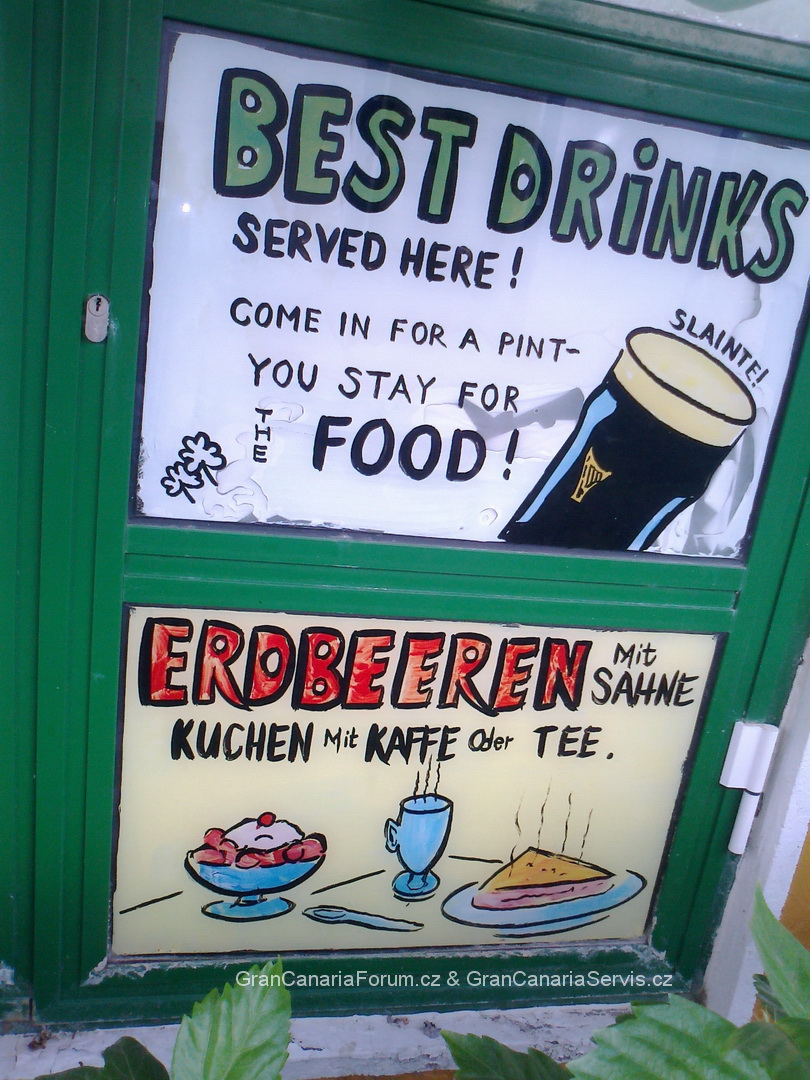 BEST DRiNKS
SERVED HERE!
COME IN FOR A PINT-
YOU STAY FOR
THE FOOD!
SLAINTE!
ERDBEEREN Mit SAHNE
KUCHEN Mit KAFFE Oder TEE.
GranCanariaForum.cz & GranCanariaServis.cz